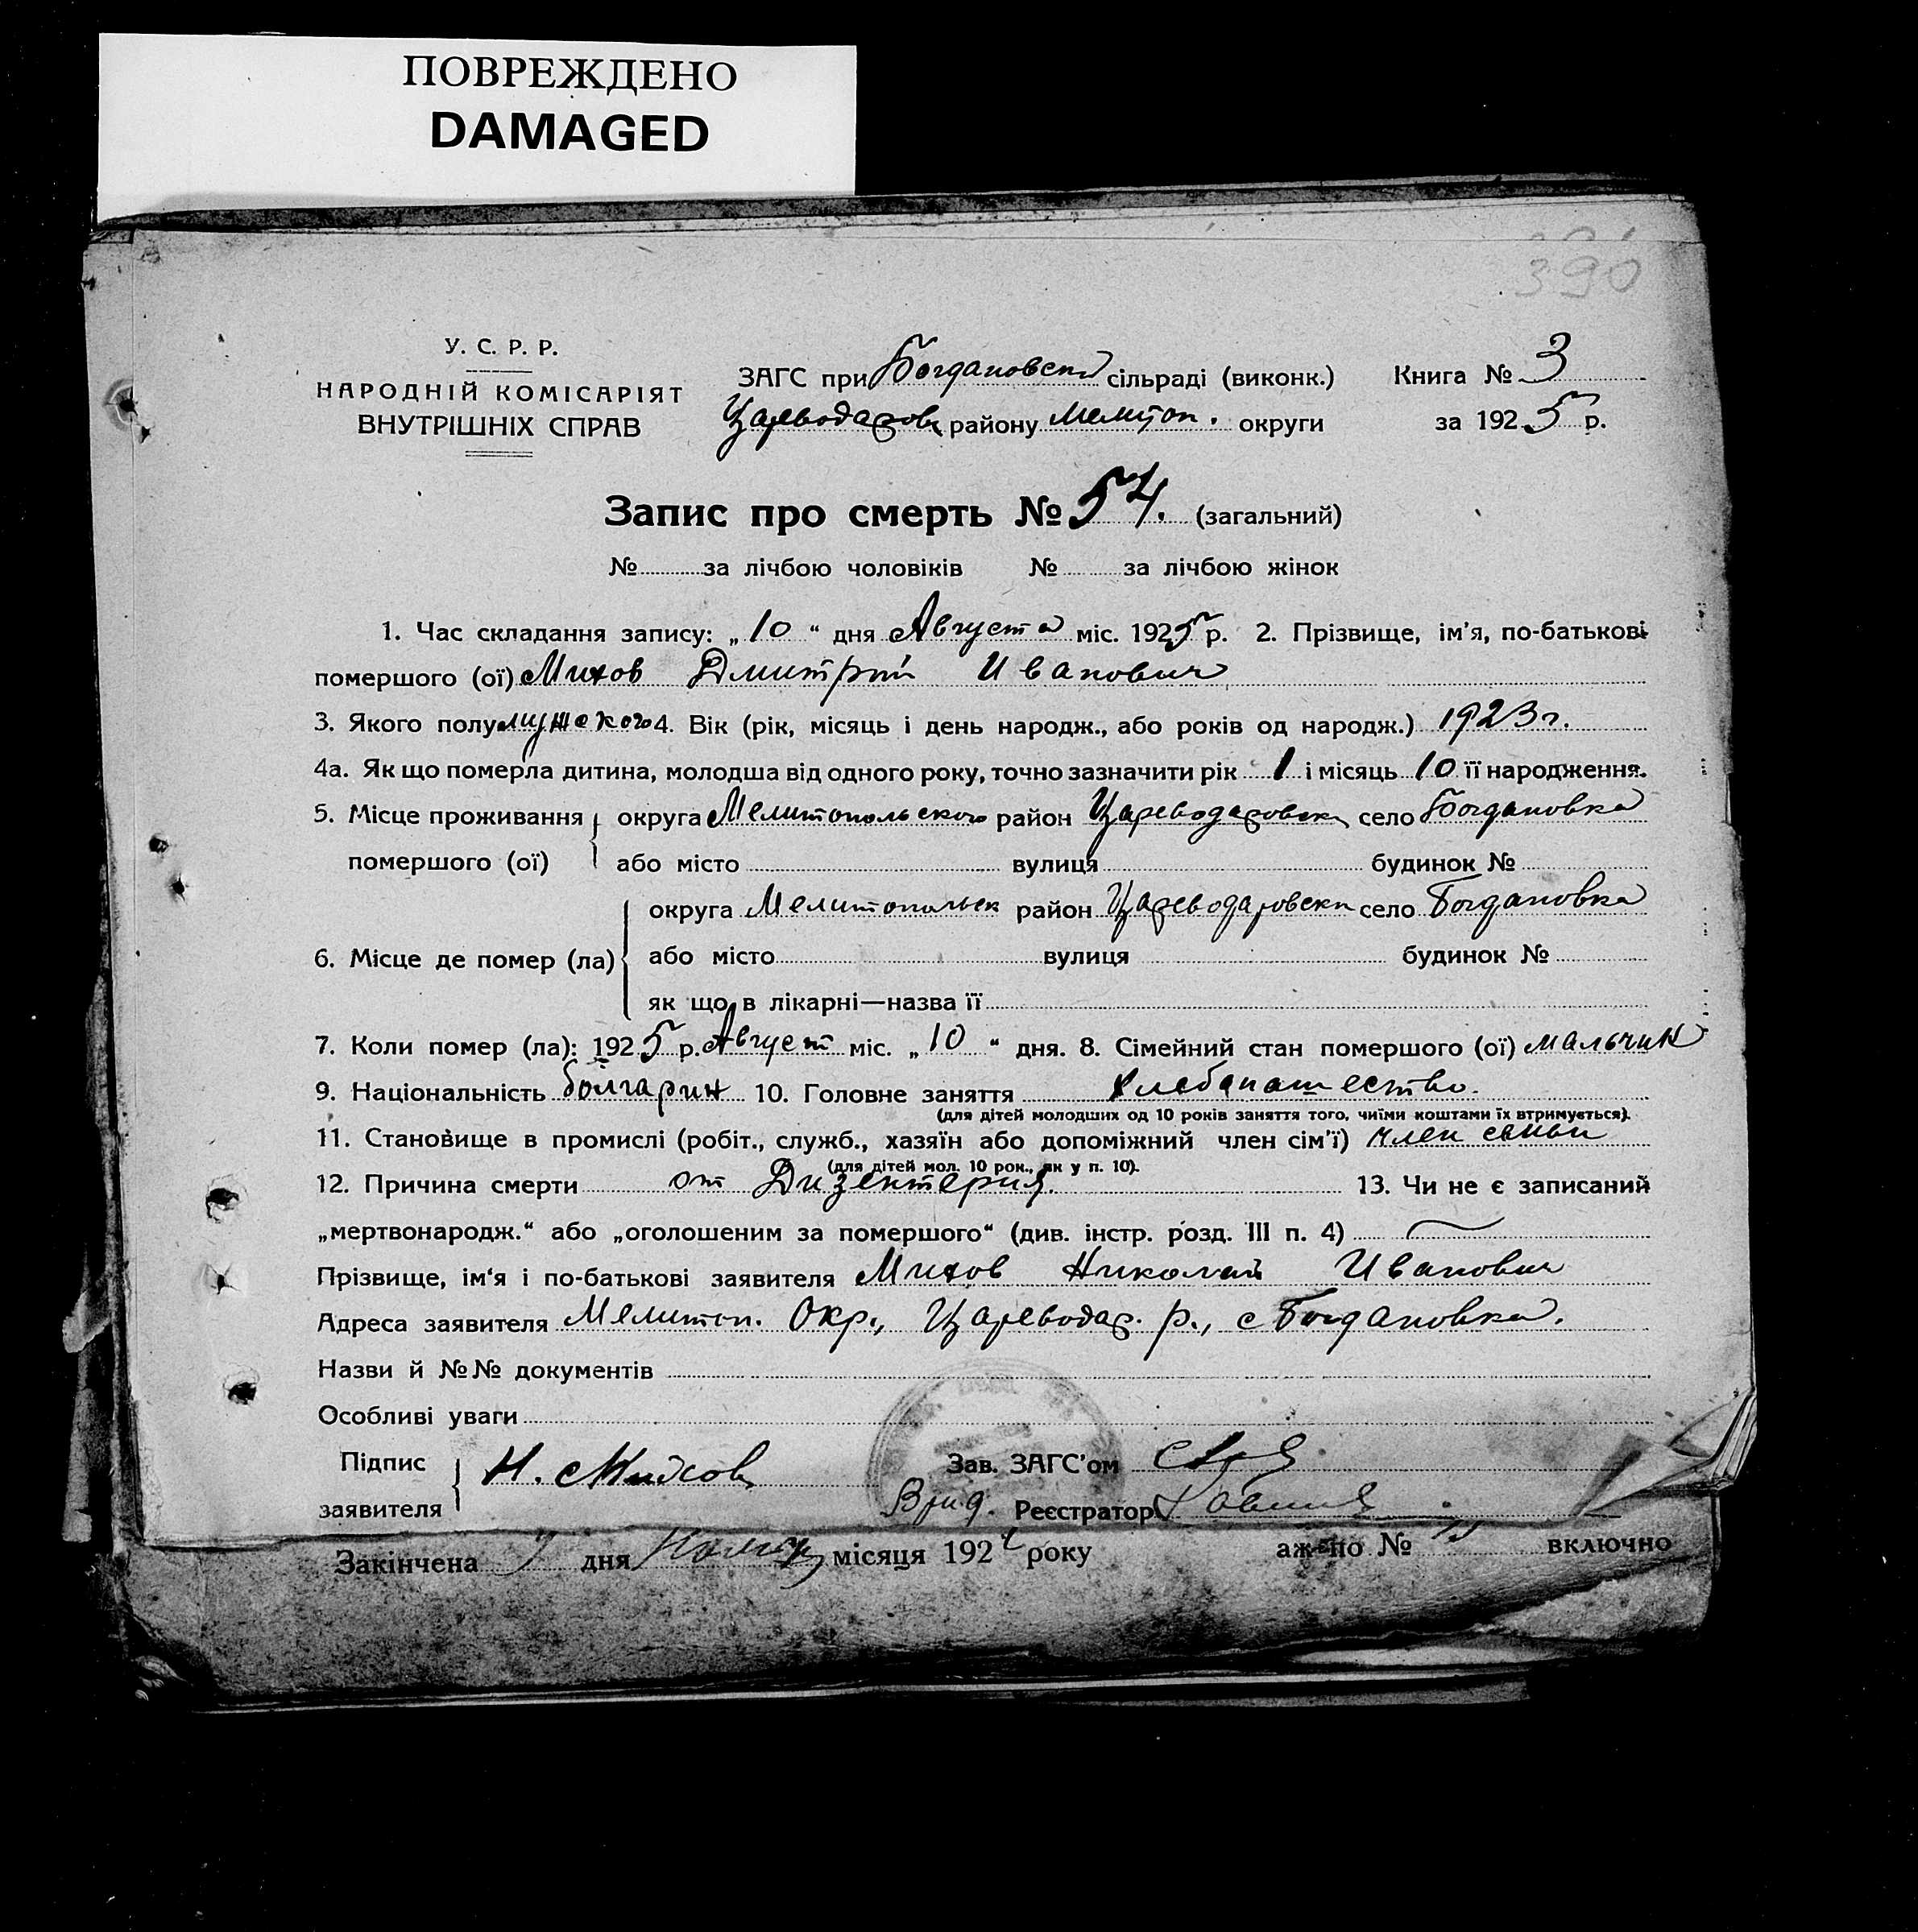 ПОВРЕЖДЕНО
DAMAGED
390
У. С. Р. Р.
НАРОДНІЙ КОМІСАРІЯТ
ВНУТРІШНІХ СПРАВ
ЗАГС при Богдановски сільраді (виконк.)
Цареводаровск району Мелитоп. округи
Книга № 3
за 1925 р.
Запис про смерть № 54. (загальний)
№ за лічбою чоловіків № за лічбою жінок
1. Час складання запису: „10“ дня Августа міс. 1925 р. 2. Прізвище, ім'я, по-батькові
помершого (ої) Михов Дмитрій Иванович
3. Якого полу мужского 4. Вік (рік, місяць і день народж., або років од народж.) 1923 г.
4а. Як що померла дитина, молодша від одного року, точно зазначити рік 1 і місяць 10 її народження.
5. Місце проживання округа Мелитопольского район Цареводаровск село Богдановка
помершого (ої) або місто вулиця будинок №
округа Мелитопольск район Цареводаровски село Богдановка
6. Місце де помер (ла) або місто вулиця будинок №
як що в лікарні—назва її
7. Коли помер (ла): 1925 р. Август міс. „10“ дня. 8. Сімейний стан помершого (ої) мальчик
9. Національність болгарин 10. Головне заняття хлебапашество.
(для дітей молодших од 10 років заняття того, чиїми коштами їх втримується).
11. Становище в промислі (робіт., служб., хазяїн або допоміжний член сім'ї) член семьи
(для дітей мол. 10 рок., як у п. 10).
12. Причина смерти от Дизентерия. 13. Чи не є записаний
„мертвонародж.“ або „оголошеним за помершого“ (див. інстр. розд. III п. 4)
Прізвище, ім'я і по-батькові заявителя Михов Николай Иванович
Адреса заявителя Мелитоп. Окр., Цареводар. р., с Богдановка.
Назви й №№ документів
Особливі уваги
Підпис
заявителя
Н. Михов
Зав. ЗАГС'ом
Врид. Реєстратор
Закінчена дня місяця 192 року аж по № включно